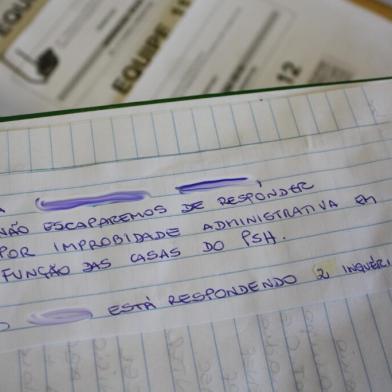 EQUIPE 11
EQUIPE
12
A
NÃO ESCAPAREMOS DE RESPONDER
POR IMPROBIDADE ADMINISTRATIVA EM
FUNÇÃO DAS CASAS DO PSH.
O ESTÁ RESPONDENDO 2 INQUÉRI